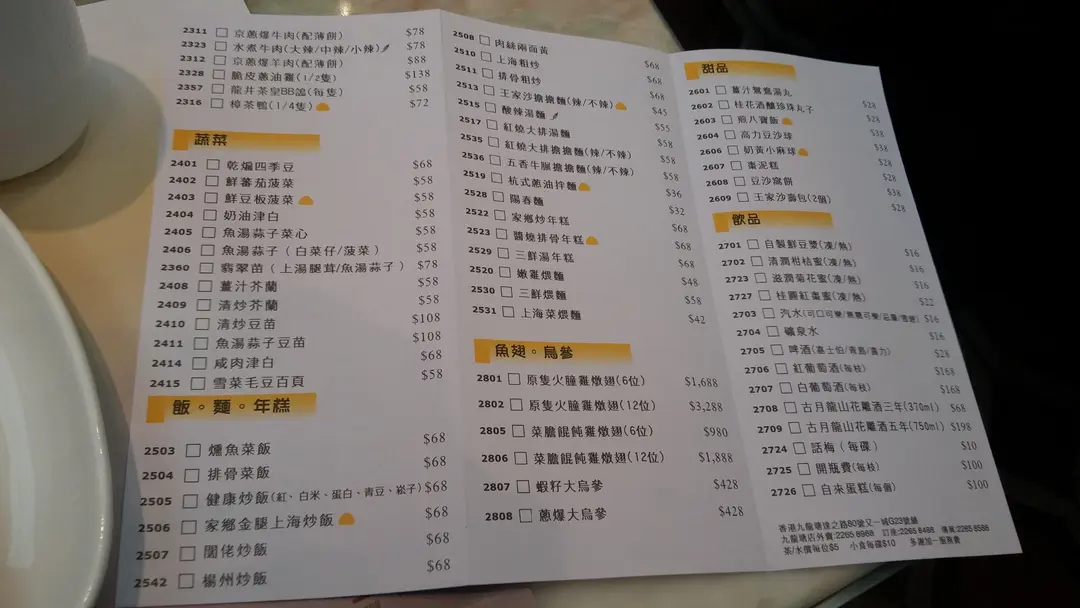 2311 京蔥爆牛肉(配薄餅) $78
2323 水煮牛肉(大辣/中辣/小辣) $78
2312 京蔥爆羊肉(配薄餅) $88
2328 脆皮蔥油雞(1/2隻) $138
2357 龍井茶皇BB鴿(每隻) $58
2316 樟茶鴨(1/4隻) $72
蔬菜
2401 乾煸四季豆 $68
2402 鮮蕃茄菠菜 $58
2403 鮮豆板菠菜 $58
2404 奶油津白 $58
2405 魚湯蒜子菜心 $58
2406 魚湯蒜子（白菜仔/菠菜） $58
2360 翡翠苗（上湯腿茸/魚湯蒜子） $78
2408 薑汁芥蘭 $58
2409 清炒芥蘭 $58
2410 清炒豆苗 $108
2411 魚湯蒜子豆苗 $108
2414 咸肉津白 $68
2415 雪菜毛豆百頁 $58
飯。麵。年糕
2503 燻魚菜飯 $68
2504 排骨菜飯 $68
2505 健康炒飯(紅、白米、蛋白、青豆、崧子) $68
2506 家鄉金腿上海炒飯 $68
2507 闊佬炒飯 $58
2542 楊州炒飯 $68
2508 肉絲兩面黃 $68
2510 上海粗炒 $68
2511 排骨粗炒 $68
2513 王家沙擔擔麵(辣/不辣) $45
2515 酸辣湯麵 $55
2517 紅燒大排湯麵 $58
2535 紅燒大排擔擔麵(辣/不辣) $58
2536 五香牛腒擔擔麵(辣/不辣) $58
2519 杭式蔥油拌麵 $36
2528 陽春麵 $32
2522 家鄉炒年糕 $68
2523 醬燒排骨年糕 $68
2529 三鮮湯年糕 $68
2520 嫩雞煨麵 $48
2530 三鮮煨麵 $58
2531 上海菜煨麵 $42
魚翅。烏參
2801 原隻火朣雞燉翅(6位) $1,688
2802 原隻火朣雞燉翅(12位) $3,288
2805 菜膽餛飩雞燉翅(6位) $980
2806 菜膽餛飩雞燉翅(12位) $1,888
2807 蝦籽大烏參 $428
2808 蔥爆大烏參 $428
甜品
2601 薑汁鴛鴦湯丸 $28
2602 桂花酒釀珍珠丸子 $28
2603 煎八寶飯 $38
2604 高力豆沙球 $38
2606 奶黃小麻球 $28
2607 棗泥糕 $28
2608 豆沙窩餅 $38
2609 王家沙壽包(2個) $28
飲品
2701 自製鮮豆漿(凍/熱) $16
2702 清潤柑桔蜜(凍/熱) $16
2723 滋潤菊花蜜(凍/熱) $16
2727 桂圓紅棗蜜(凍/熱) $22
2703 汽水(可口可樂/無糖可樂/忌廉/雪碧) $16
2704 礦泉水 $16
2705 啤酒(嘉士伯/青島/喜力) $28
2706 紅葡萄酒(每枝) $168
2707 白葡萄酒(每枝) $168
2708 古月龍山花雕酒三年(370ml) $68
2709 古月龍山花雕酒五年(750ml) $198
2724 話梅（每碟） $10
2725 開瓶費(每枝) $100
2726 自來蛋糕(每個) $100
香港九龍塘達之路80號又一城G23號舖
九龍塘店外賣:2265 8988 訂座:2265 8488 傳真:2265 8588
茶/水價每位$5 小食每碟$10 多謝加一服務費